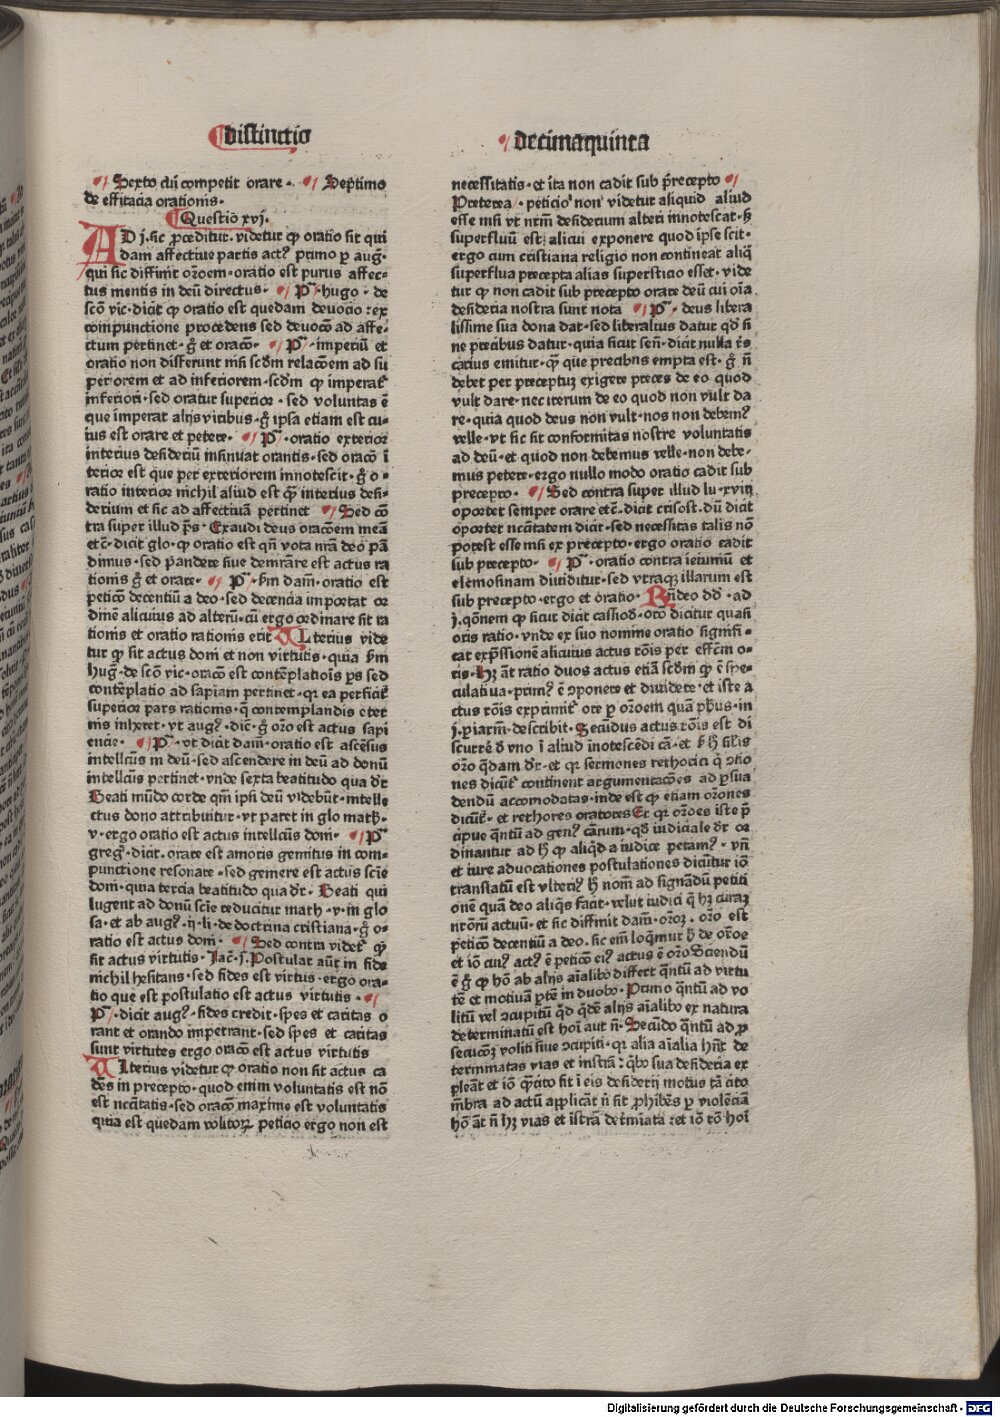 distinctio
decimaquinta
Sexto cū competit orare · Septimo
de efficacia orationis·
Questiō xvj·
AD j·sic proceditur·videtur ꝙ oratio sit qui
dam affectiue partis actꝰ primo p̱ aug·
qui sic diffinit or̄oem·oratio est purus affec-
tus mentis in deū directus· P̄·hugo·de
scōn vic·dicit ꝙ oratio est quedam deuocio:ex
compunctione procedens sed deuocō ad affe-
ctum pertinet·g̊ et oracō· P̄·imperiū et
oratio non differunt nisi scd̄m relacōem ad su
periorem et ad inferiorem·scd̄m ꝙ imperat̄
inferiori·sed oratur superior·sed voluntas ē
que imperat alijs viribus·g̊ ipsa etiam est cu-
ius est orare et petere· P̄·oratio exterior
interius desideriū insinuat orantis·sed oracō ī
terior est que per exteriorem innotescit·g̊ o-
ratio interior nichil aliud est q̄ꝫ interius desi-
derium et sic ad affectiuā pertinet Sed cō
tra super illud ps̄·Exaudi deus oracōem meā
etc̄·dicit glo·ꝙ oratio est qn̄ vota nr̄a deo pā
dimus·sed pandere siue demr̄are est actus ra
tionis g̊ et orare· P̄·ƀm dam̄·oratio est
peticō decentiū a deo·sed decencia importat or
dinē alicuius ad alterū·cū ergo ordinare sit ra
tionis et oratio rationis erit Alterius vide
tur ꝙ sit actus doni et non virtutis·quia ƀm
hug̊·de scōn vic·oracō est contēplatiōis ps̄ sed
contēplatio ad sapiam pertinet·qr ea perficit̄
superior pars rationis·q̄ contemplandis eter
nis inheret·vt augꝰ·dic̄·g̊ or̄o est actus sapi
encie· P̄·vt dicit dam̄·oratio est ascēsus
intellcūs in deū·sed ascendere in deū ad donū
intellcūs pertinet·vnde sexta beatitudo qua dr̄
Beati mūdo corde qm̄ ipsi deū videbūt·intelle
ctus dono attribuitur·vt paret in glo math̄·
v·ergo oratio est actus intellcūs doni· P̄
gregꝰ·dicit·orare est amoris gemitus in com-
punctione resonare·sed gemere est actus scīe
doni·quia tercia beatitudo qua dr̄·Beati qui
lugent ad donū scīe reducitur math·v·in glo
sa·et ab augꝰ·ij·li·de doctrina cristiana·g̊ o-
ratio est actus doni· Sed contra videt̄ ꝙ
sit actus virtutis·Jac̄·j·Postulat aūt in fide
nichil hesitans·sed fides est virtus·ergo ora-
tio que est postulatio est actus virtutis·
P̄·dicit augꝰ·fides credit·spes et caritas o
rant et orando impetrant·sed spes et caritas
sunt virtutes ergo oracō est actus virtutis
Alterius videtur ꝙ oratio non sit actus ca
dēs in precepto·quod enim voluntatis est nō
est ncītatis·sed oracō maxime est voluntatis
quia est quedam volitorꝝ peticio ergo non est
necessitatis·et ita non cadit sub p̄cepto
Preterea·peticio non videtur aliquid aliud
esse nisi vt nrm̄ desiderium alteri innotescat·sꝫ
superfluū est alicui exponere quod ipse scit·
ergo cum cristiana religio non contineat aliq̄
superflua precepta alias superstitio esset·vide
tur ꝙ non cadit sub precepto orare deū cui oīa
desideria nostra sunt nota P̄·deus libera
lissime sua dona dat·sed liberalius datur qd̄ si
ne precibus datur·quia sicut sen̄·dicit nulla rēs
carius emitur·q̄ꝫ que precibus empta est·g̊ n̄
debet per preceptuꝫ exigere preces de eo quod
vult dare·nec iterum de eo quod non vult da
re·quia quod deus non vult·nos non debemꝰ
velle·vt sic sit conformitas nostre voluntatis
ad deū·et quod non debemus velle·non debe-
mus petere·ergo nullo modo oratio cadit sub
precepto· Sed contra super illud lu·xviij
oportet semper orare etc̄·dicit crisost·dū dicit
oportet ncītatem dicit·sed necessitas talis nō
potest esse nisi ex precepto·ergo oratio cadit
sub precepto· P̄·oratio contra ieiuniū et
elemosinam diuiditur·sed vtraqꝫ illarum est
sub precepto·ergo et oratio· Rn̄deo dd̄·ad
j·qōnem ꝙ sicut dicit cassiod·orō dicitur quasi
oris ratio·vnde ex suo nomine oratio signifi-
cat exp̄ssionē alicuius actus rōis per effcm̄ o-
ris·Hꝫ aūt ratio duos actus etiā scd̄m ꝙ ē spe-
culatiua·primꝰ ē ꝯponere et diuidere·et iste a
ctus rōis exprimit̄ ore p̱ or̄oem quā ph̄us·in
j·p̱iarm̄·describit·Secūdus actus rōis est di
scurrē d̄ vno ī aliud inotescēdi cā·et ẜm hͦ sil̄is
or̄o q̄dam dr̄·et qr sermones rethorici q̄ ꝯtio
nes dicūt̄ continent argumentacōes ad p̱sua
dendū accomodatas·inde est ꝙ etiam or̄ones
dicūt̄·et rethores oratores Et qr or̄oes iste p̄
cipue qn̄tū ad genꝰ cārum·qd̄ iudiciale dr̄ or
dinantur ad hͦ ꝙ aliqd a iudice petam̄·vn̄
et iure aduocationes postulationes dicūtur iō
translatū est vlteriꝰ hͦ nomē ad signādū petiti
onē quā deo aliq̄s facit·velut iudici q̄ hꝫ curaꝫ
nr̄orū actuū·et sic diffinit dam̄·or̄oꝫ·or̄o est
peticō decentiū a deo·sic em̄ loq̄mur hͦ de or̄oe
et iō cuiꝰ actꝰ ē peticō eiꝰ actus ē or̄o Sciendū
ē g̊ ꝙ hō ab alijs aīalibꝫ differt qn̄tū ad virtu
tē et motiuā p̱tē in duobꝫ·Primo qn̄tū ad vo
litū vel ꝯcupitū qd̄ qdē alijs aīalibꝫ ex natura
determinatū est hoī aut n̄·Secūdo qn̄tū ad p̱
secucōꝫ voliti siue ꝯcupiti·qr alia aīalia hn̄t de
terminatas vias et instrā:qͥbꝫ sua desideria ex
pleāt et iō q̄cito fit ī eis desiderij motus tā cito
mēbra ad actū applicāt n̄ sit prohibēs p̱ violēciā
hō aūt n̄ hꝫ vias et istrā detmīata:et iō rō hoī
Digitalisierung gefördert durch die Deutsche Forschungsgemeinschaft - DFG